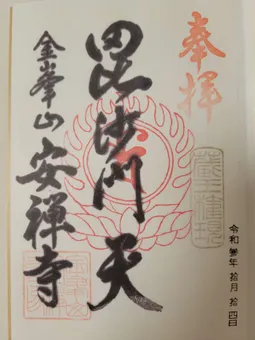 奉拝
藏王權現
毘沙門天
金峯山 安禅寺
令和参年 拾月 拾四日